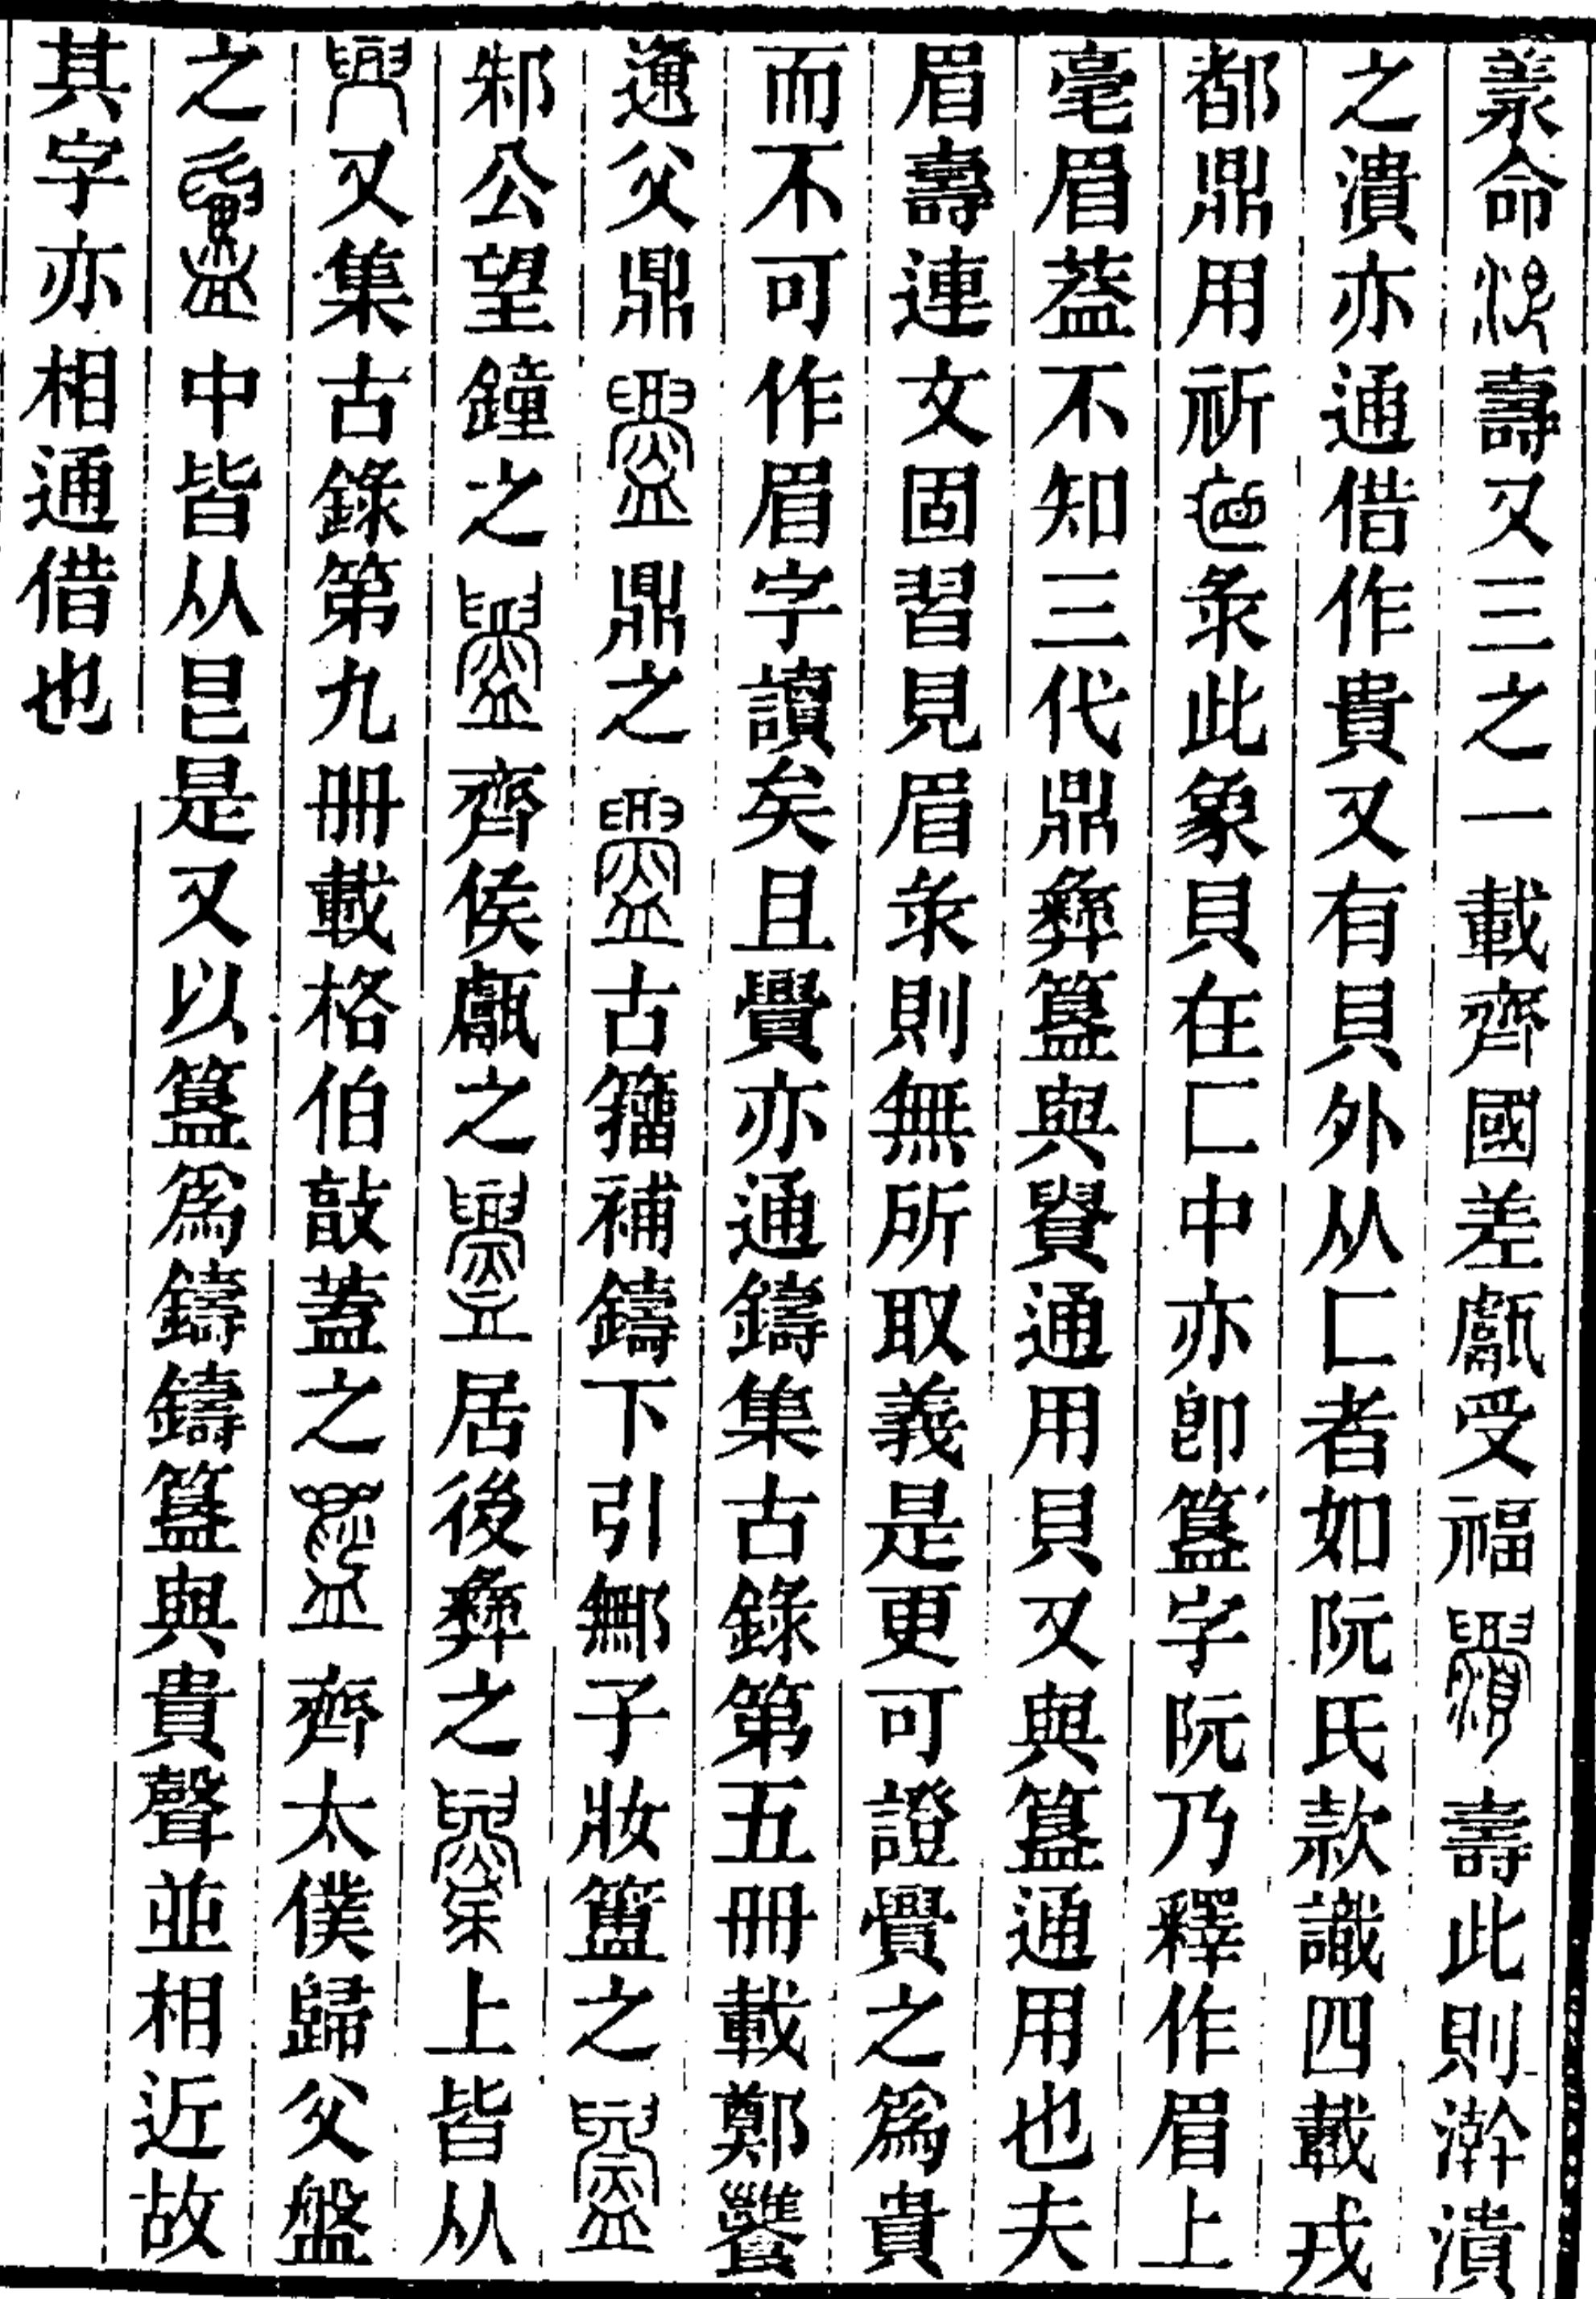 羕命壽又三之一載齊國差甔受福壽此則澣潰
之潰亦通借作貴又有貝外从匚者如阮氏款識四載戎
都鼎用祈彔此象貝在匚中亦卽簋字阮乃釋作眉上
毫眉葢不知三代鼎彝簋與釁通用貝又與簋通用也夫
眉壽連文固習見眉彔則無所取義是更可證釁之爲貴
而不可作眉字讀矣且釁亦通鑄集古錄第五册載鄭饔
邍父鼎鼎之古籀補鑄下引鄦子妝簠之
邾公望鐘之齊侯甗之居後彝之上皆从
又集古錄第九册載格伯敲蓋之齊太僕歸父盤
之中皆从㠯是又以簋爲鑄鑄簋與貴聲並相近故
其字亦相通借也